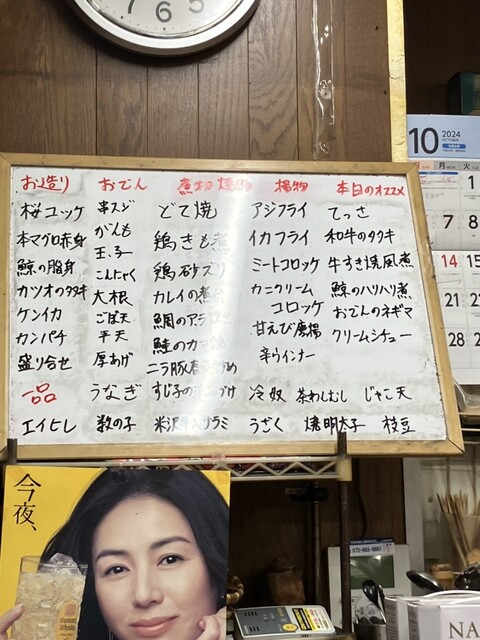 6 5
10 2024
OCTOBER
月 火
1
7 8
14 15
21
28
お造り おでん 煮物 焼物 揚物 本日のオススメ
桜ユッケ 串スジ どて焼 アジフライ てっさ
本マグロ赤身 がんも 鶏きも煮 イカフライ 和牛のタタキ
玉子
鯨の脂身 こんにゃく 鶏砂ズリ ミートコロッケ 牛すき焼風煮
カツオのタタキ 大根 カレイの煮 カニクリーム 鯨のハリハリ煮
ケンイカ ごぼ天 鯛のアラ コロッケ おでんのネギマ
カンパチ 平天 鮭のカマ 甘えび唐揚 クリームシチュー
盛り合せ 厚あげ ニラ豚 辛ウインナー
一品 うなぎ すじ子の 冷奴 茶わんむし じゃこ天
エイヒレ 数の子 米沢 サラミ うざく 焼明太子 枝豆
今夜、
NA